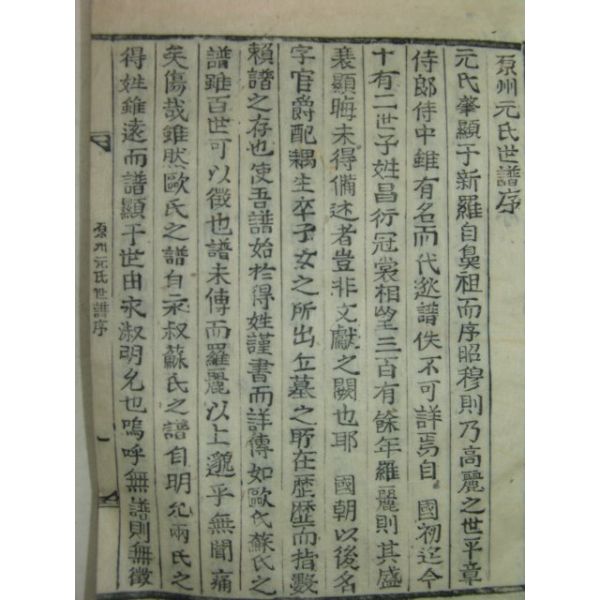 原州元氏世譜序
元氏肇顯于新羅自鼻祖而序昭穆則乃高麗之世平章
侍郎侍中雖有名而代遠譜佚不可詳焉自 國初迄今
十有二世子姓昌衍冠裳相望三百有餘年羅麗則其盛
衰顯晦未得備述者豈非文獻之闕也耶 國朝以後名
字官爵配耦生卒子女之所出丘墓之所在歷歷而指數
賴譜之存也使吾譜始於得姓謹書而詳傳如歐氏蘇氏之
譜雖百世可以徵也譜未傳而羅麗以上邈乎無聞痛
矣傷哉雖然歐氏之譜自永叔蘇氏之譜自明允兩氏之
得姓雖遠而譜顯于世由永叔明允也嗚呼無譜則無徵
原州元氏世譜序 一